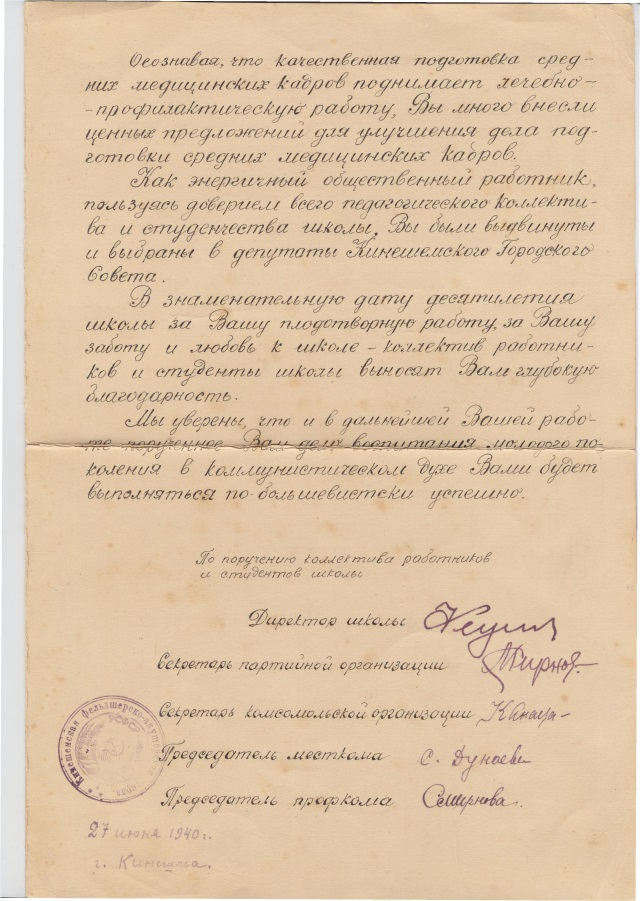 Осознавая, что качественная подготовка сред-
них медицинских кадров поднимает лечебно-
-профилактическую работу, Вы много внесли
ценных предложений для улучшения дела под-
готовки средних медицинских кадров.
Как энергичный общественный работник,
пользуясь доверием всего педагогического коллекти-
ва и студенчества школы, Вы были выдвинуты
и выбраны в депутаты Кинешемского Городского
Совета.
В знаменательную дату десятилетия
школы за Вашу плодотворную работу, за Вашу
заботу и любовь к школе - коллектив работни-
ков и студенты школы выносят Вам глубокую
благодарность.
Мы уверены, что и в дальнейшей Вашей рабо-
те порученное Вам дело воспитания молодого по-
коления в коммунистическом духе Вами будет
выполняться по-большевистски успешно.
По поручению коллектива работников
и студентов школы
Директор школы
Секретарь партийной организации
Секретарь комсомольской организации
Председатель месткома С. Дунаева
Председатель профкома Смирнова.
Кинешемская фельдшерско-акушерская
27 июня 1940 г.
г. Кинешма.